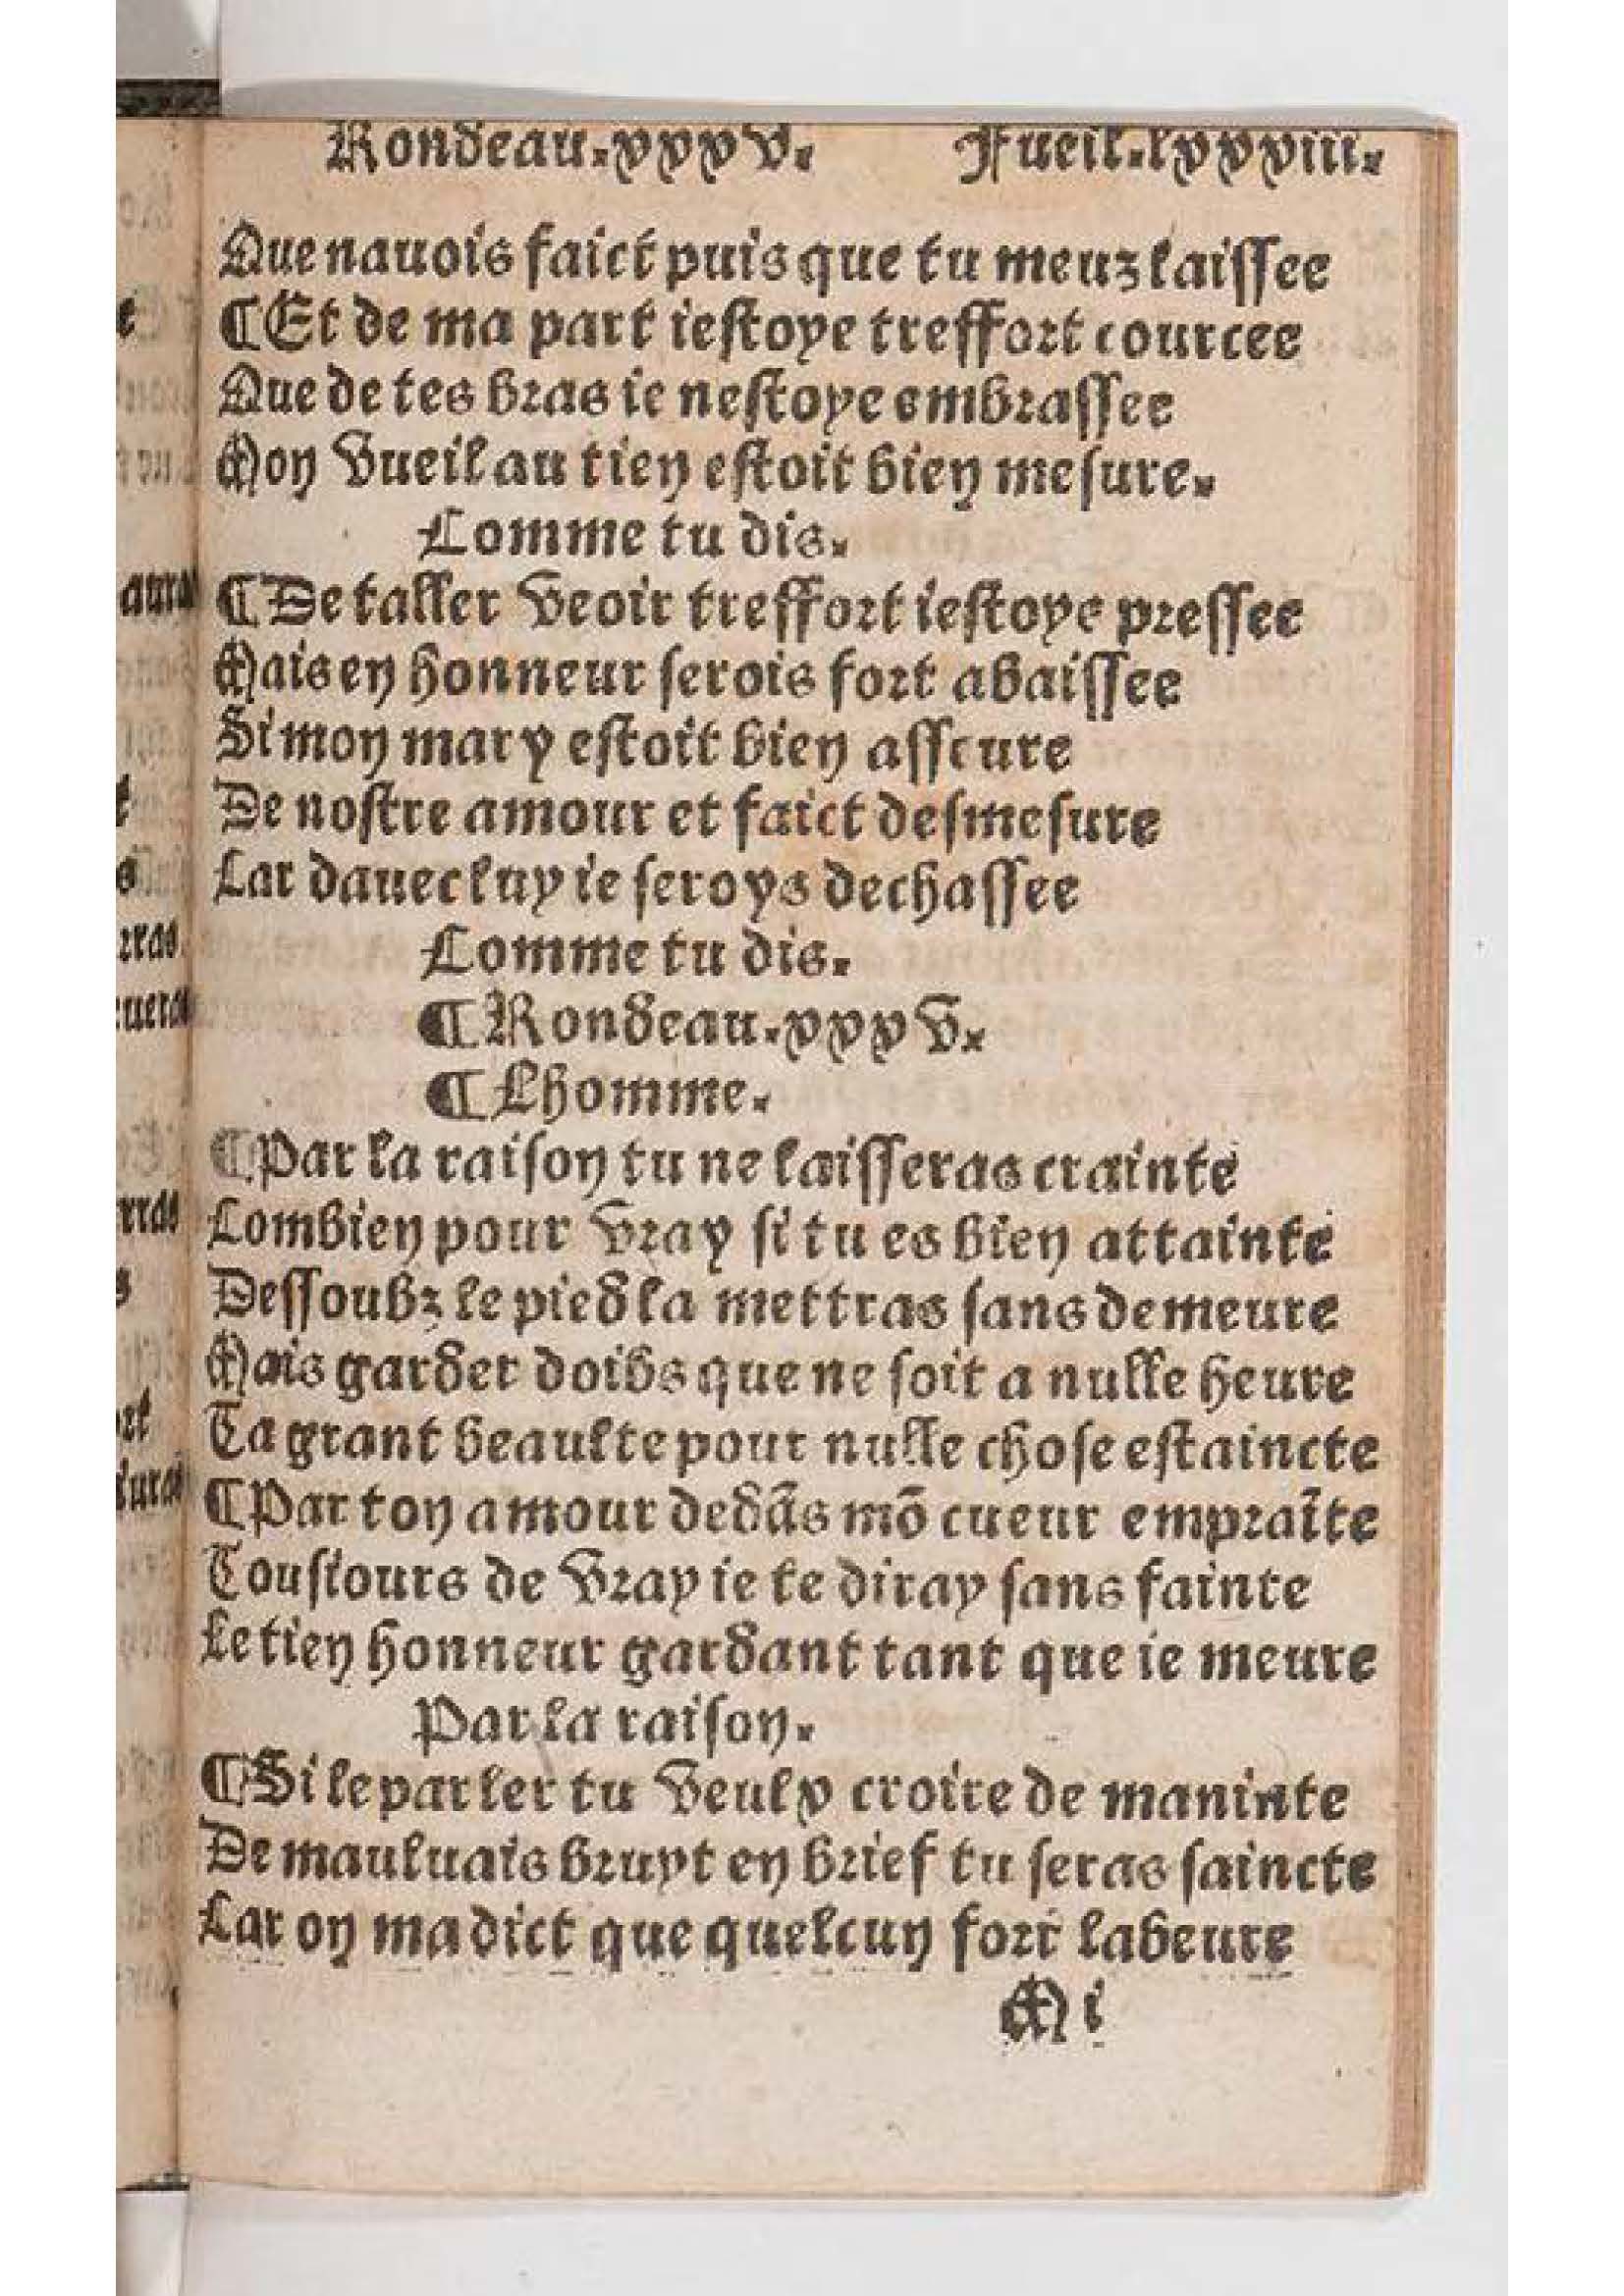 Rondeau.xxxv. Fueil.lxxxviii.
Que nauois faict puis que tu meuz laissee
¶Et de ma part iestoye treffort cources
Que de tes bras ie nestoye embrassee
Mon vueil au tien estoit bien mesure.
Comme tu dis.
¶De taller veoir treffort iestoye pressee
Mais en honneur serois fort abaissee
Si mon mary estoit bien asseure
De nostre amour et faict desmesure
Car dauec luy ie seroys dechassee
Comme tu dis.
¶Rondeau.xxxv.
¶Lhomme.
¶Par la raison tu ne laisseras crainte
Combien pour vray si tu es bien attainte
Dessoubz le pied la mettras sans demeure
Mais garder doibs que ne soit a nulle heure
Ta grant beaulte pour nulle chose estaincte
¶Par ton amour dedãs mõ cueur empraĩte
Tousiours de vray ie te diray sans fainte
Le tien honneur gardant tant que ie meure
Par la raison.
¶Si le parler tu veulx croire de maninte
De mauluais bruyt en brief tu seras saincte
Car on ma dict que quelcun fort labeure
M i